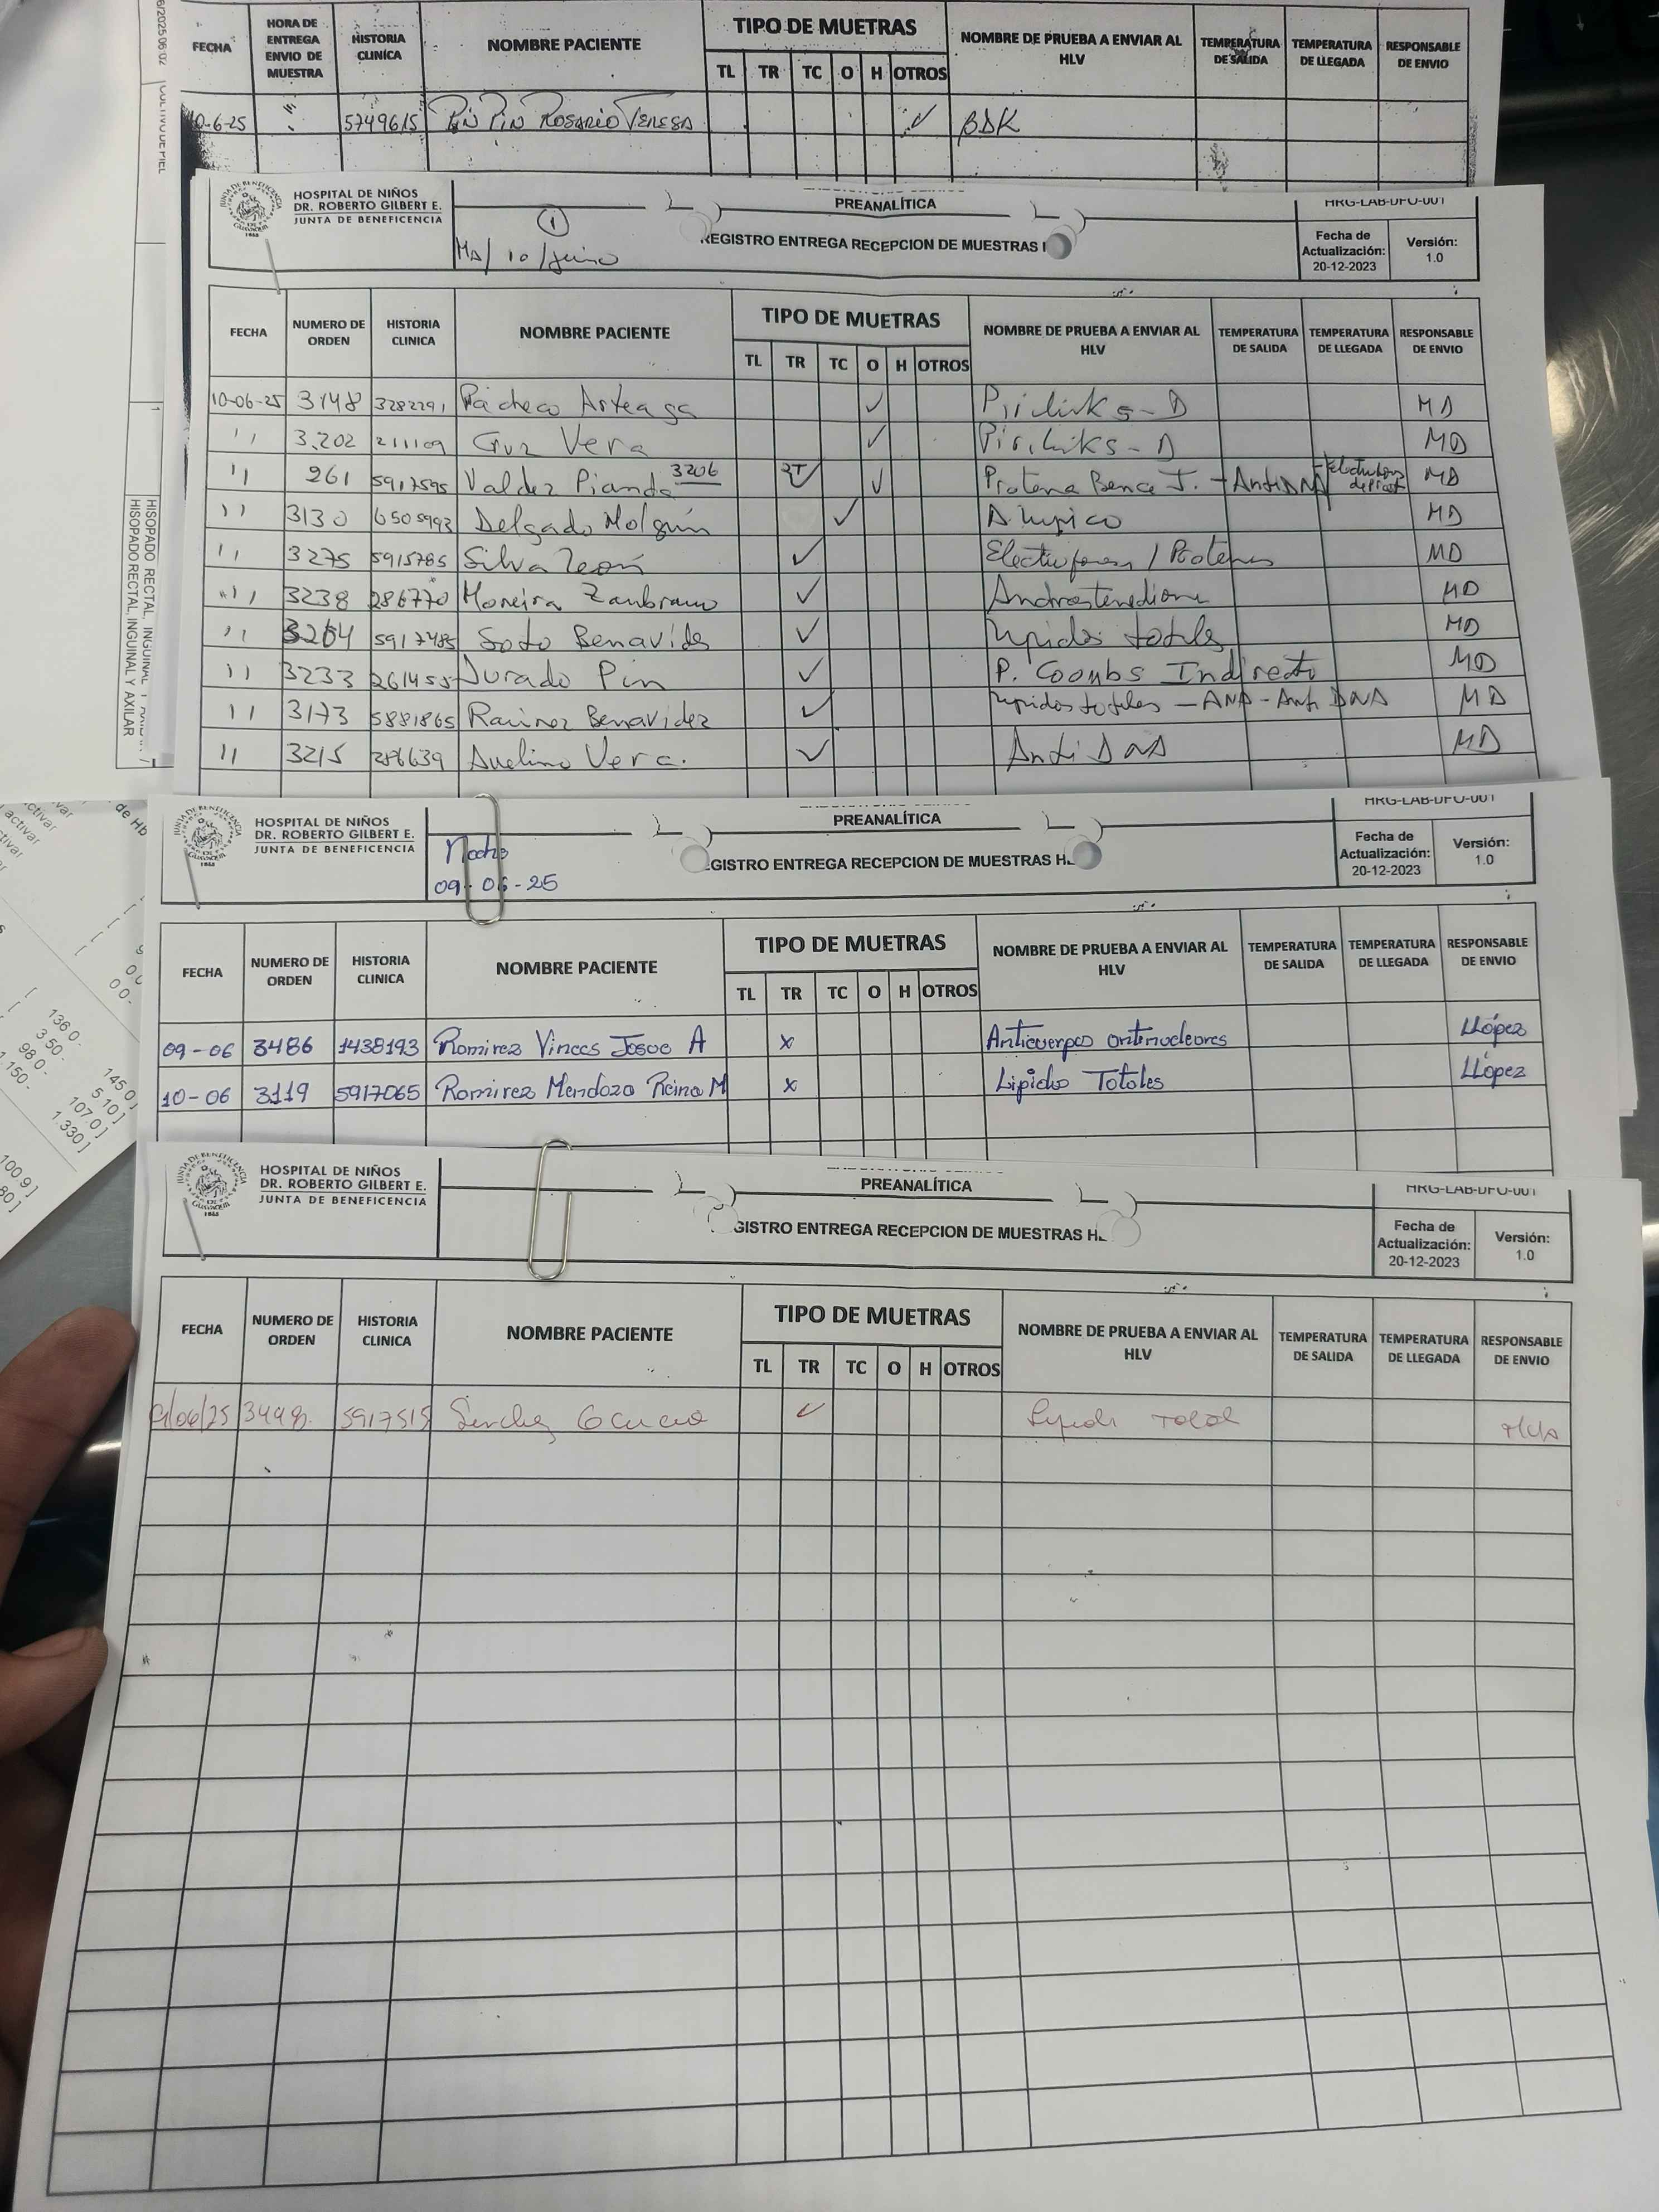 FECHA HORA DE ENTREGA ENVIO DE MUESTRA HISTORIA CLINÍCA NOMBRE PACIENTE TIPO DE MUETRAS NOMBRE DE PRUEBA A ENVIAR AL HLV TEMPERATURA DE SALIDA TEMPERATURA DE LLEGADA RESPONSABLE DE ENVIO
TL TR TC O H OTROS
0-6-25 5749615 Pin Pin Rosario Teresa ✓ BDK
HISOPADO RECTAL, INGUINAL Y AXILAR
HOSPITAL DE NIÑOS
DR. ROBERTO GILBERT E.
JUNTA DE BENEFICENCIA
PREANALÍTICA
REGISTRO ENTREGA RECEPCION DE MUESTRAS
HRG-LAB-DFO-001
Fecha de Actualización: 20-12-2023
Versión: 1.0
1
MD/ 10/Junio
FECHA NUMERO DE ORDEN HISTORIA CLINICA NOMBRE PACIENTE TIPO DE MUETRAS NOMBRE DE PRUEBA A ENVIAR AL HLV TEMPERATURA DE SALIDA TEMPERATURA DE LLEGADA RESPONSABLE DE ENVIO
TL TR TC O H OTROS
10-06-25 3148 3282291 Pacheco Arteaga ✓ MD
'' 3.202 211109 Cruz Vera ✓ MD
'' 261 5917595 Valdez Pianda 3206 2T ✓ Protena Bence J. - AntiDNA MD
'' 3130 6505993 Delgado Holguín ✓ MD
'' 3275 5915785 Silva León ✓ MD
'' 3238 286770 Moreira Zambrano ✓ Androstenediona MD
'' 3264 5917485 Soto Benavides ✓ Lipidos totales MD
'' 3233 261455 Jurado Pin ✓ P. Coombs Indirecto MD
'' 3173 5881865 Ramirez Benavidez ✓ Lipidos totales - ANA - Anti DNA MD
'' 3215 286639 Avelino Vera. ✓ Anti DNA MD
HOSPITAL DE NIÑOS
DR. ROBERTO GILBERT E.
JUNTA DE BENEFICENCIA
PREANALÍTICA
GISTRO ENTREGA RECEPCION DE MUESTRAS
HRG-LAB-DFO-001
Fecha de Actualización: 20-12-2023
Versión: 1.0
Noche
09-06-25
FECHA NUMERO DE ORDEN HISTORIA CLINICA NOMBRE PACIENTE TIPO DE MUETRAS NOMBRE DE PRUEBA A ENVIAR AL HLV TEMPERATURA DE SALIDA TEMPERATURA DE LLEGADA RESPONSABLE DE ENVIO
TL TR TC O H OTROS
09-06 3486 1438193 Ramirez Vinces Josue A x Anticuerpos antinucleares LLópez
10-06 3119 5917065 Ramirez Mendoza Reina M x Lipidos Totales LLópez
HOSPITAL DE NIÑOS
DR. ROBERTO GILBERT E.
JUNTA DE BENEFICENCIA
PREANALÍTICA
GISTRO ENTREGA RECEPCION DE MUESTRAS
HRG-LAB-DFO-001
Fecha de Actualización: 20-12-2023
Versión: 1.0
FECHA NUMERO DE ORDEN HISTORIA CLINICA NOMBRE PACIENTE TIPO DE MUETRAS NOMBRE DE PRUEBA A ENVIAR AL HLV TEMPERATURA DE SALIDA TEMPERATURA DE LLEGADA RESPONSABLE DE ENVIO
TL TR TC O H OTROS
9/06/25 3498. 5917515 ✓ Total